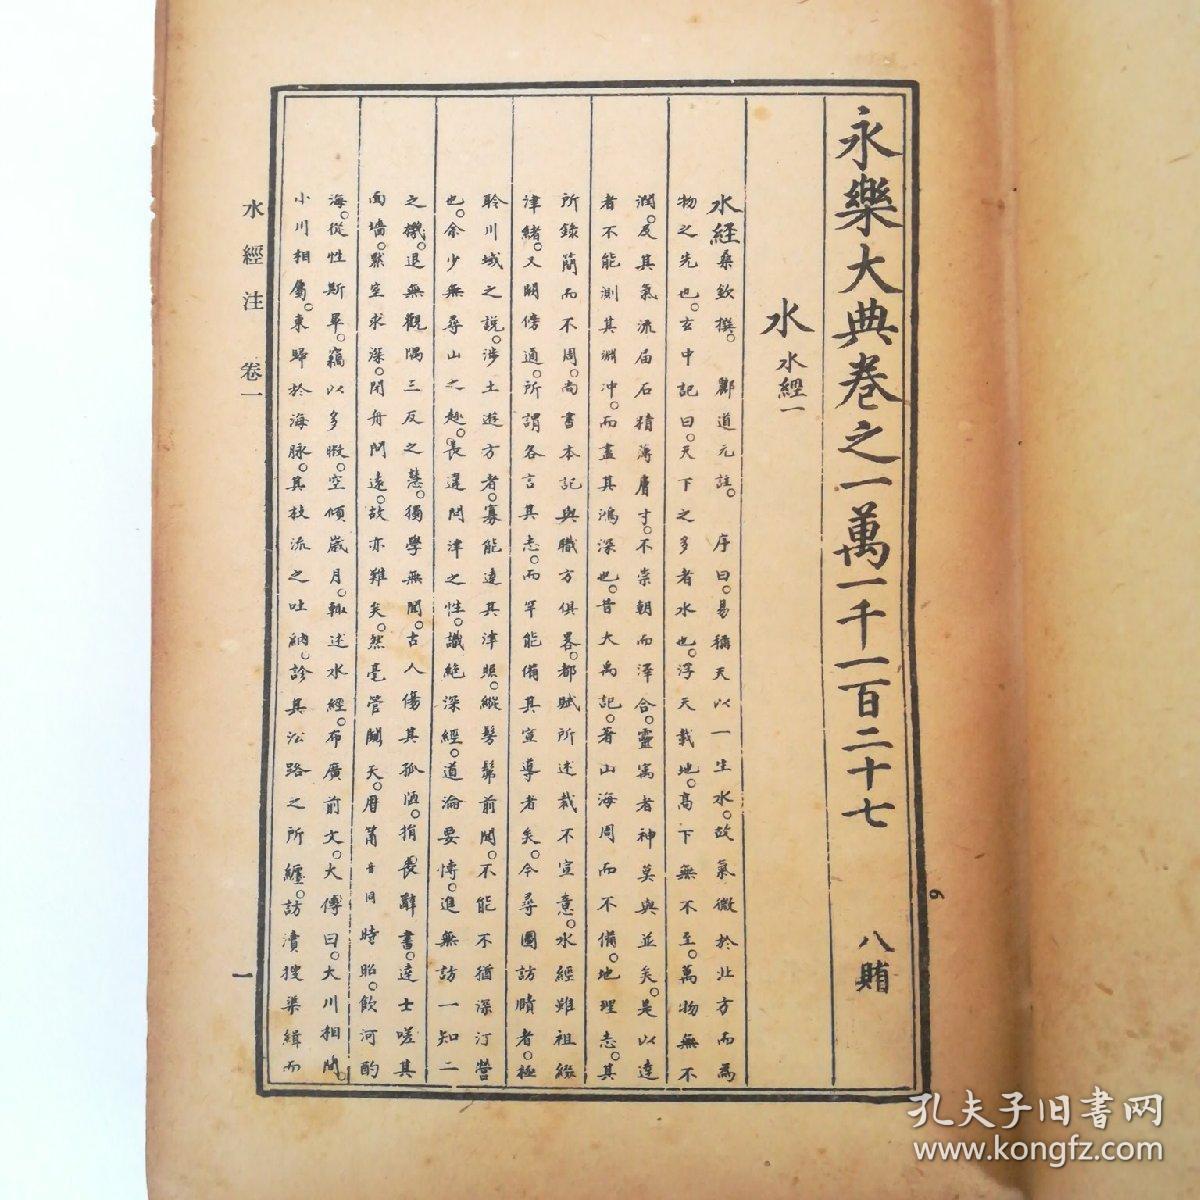 永樂大典卷之一萬一千一百二十七 八賄
水 水經一
水經桑欽撰。 酈道元註。 序曰。易稱天以一生水。故氣微於北方而爲
物之先也。玄中記曰。天下之多者水也。浮天載地。高下無不至。萬物無不
潤。及其氣流屆石精薄膚寸。不崇朝而澤合。靈寓者神莫與並矣。是以達
者不能測其淵沖。而盡其鴻深也。昔大禹記。著山海周而不備。地理志。其
所錄簡而不周。尚書本記與職方俱畧。都賦所述裁不宣意。水經雖祖綴
津緒。又闕傍通。所謂各言其志。而罕能備其宣導者矣。今尋圖訪賾者。極
聆川域之說。涉土遊方者。寡能達其津照。縱髣髴前聞。不能不猶深汀營
也。余少無尋山之趣。長違問津之性。識絶深經。道淪要愽。進無訪一知二
之機。退無觀隅三反之慧。獨學無聞。古人傷其孤陋。捐喪辭書。達士嗟其
面墻。黙室求深。閉舟問遠。故亦難矣。然毫管闚天。歷筩昔同時昭。飲河酌
海。從性斯畢。竊以多暇。空傾歲月。輙述水經。布廣前文。大傳曰。大川相間。
小川相屬。東歸於海脉。其枝流之吐納。診其㳂路之所纏。訪瀆搜渠緝而
水經注 卷一
一
6
孔夫子旧书网
www.kongfz.com